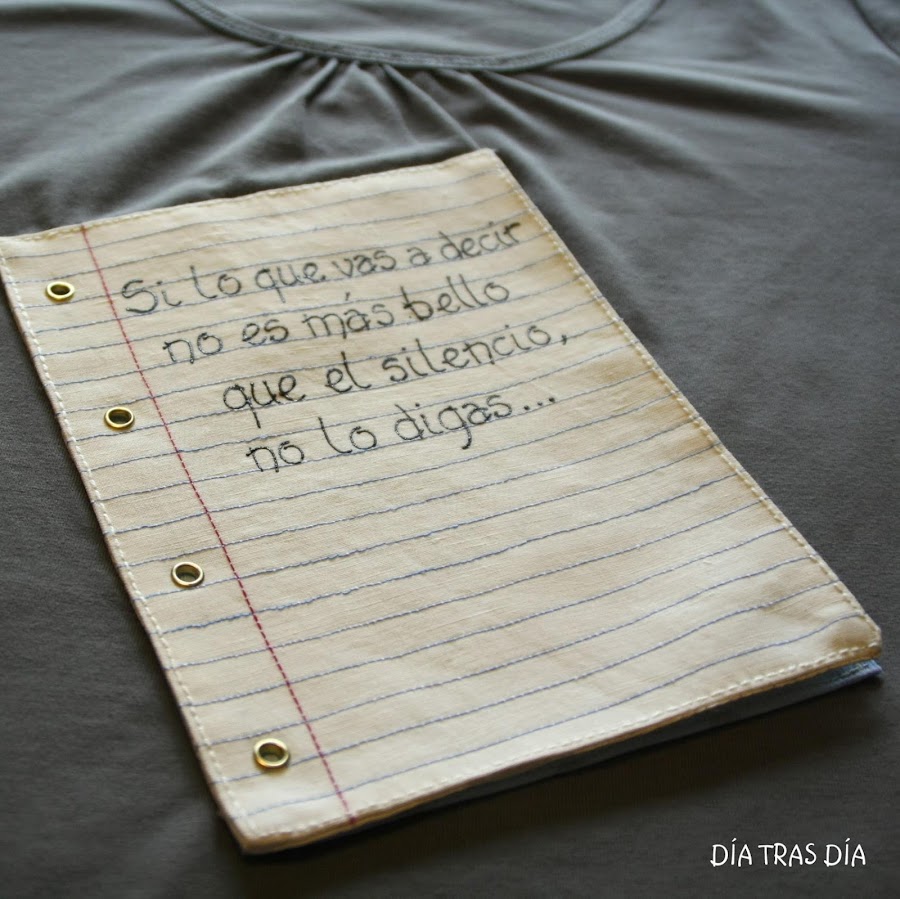 Si lo que vas a decir
no es más bello
que el silencio,
no lo digas...
DÍA TRAS DÍA